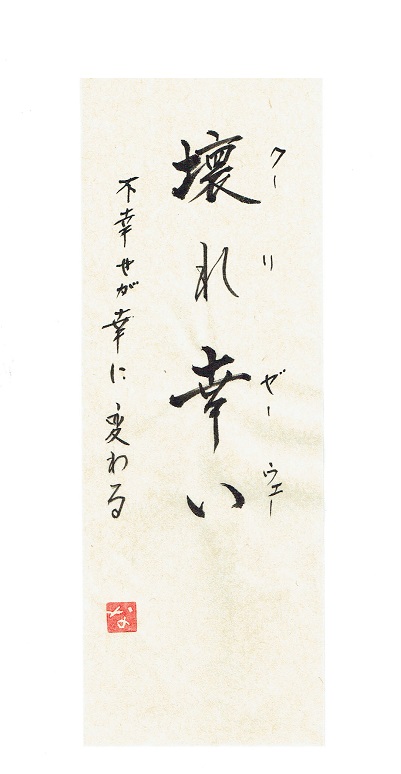 クーリゼーウェー
壊れ幸い
不幸せが幸に変わる
な